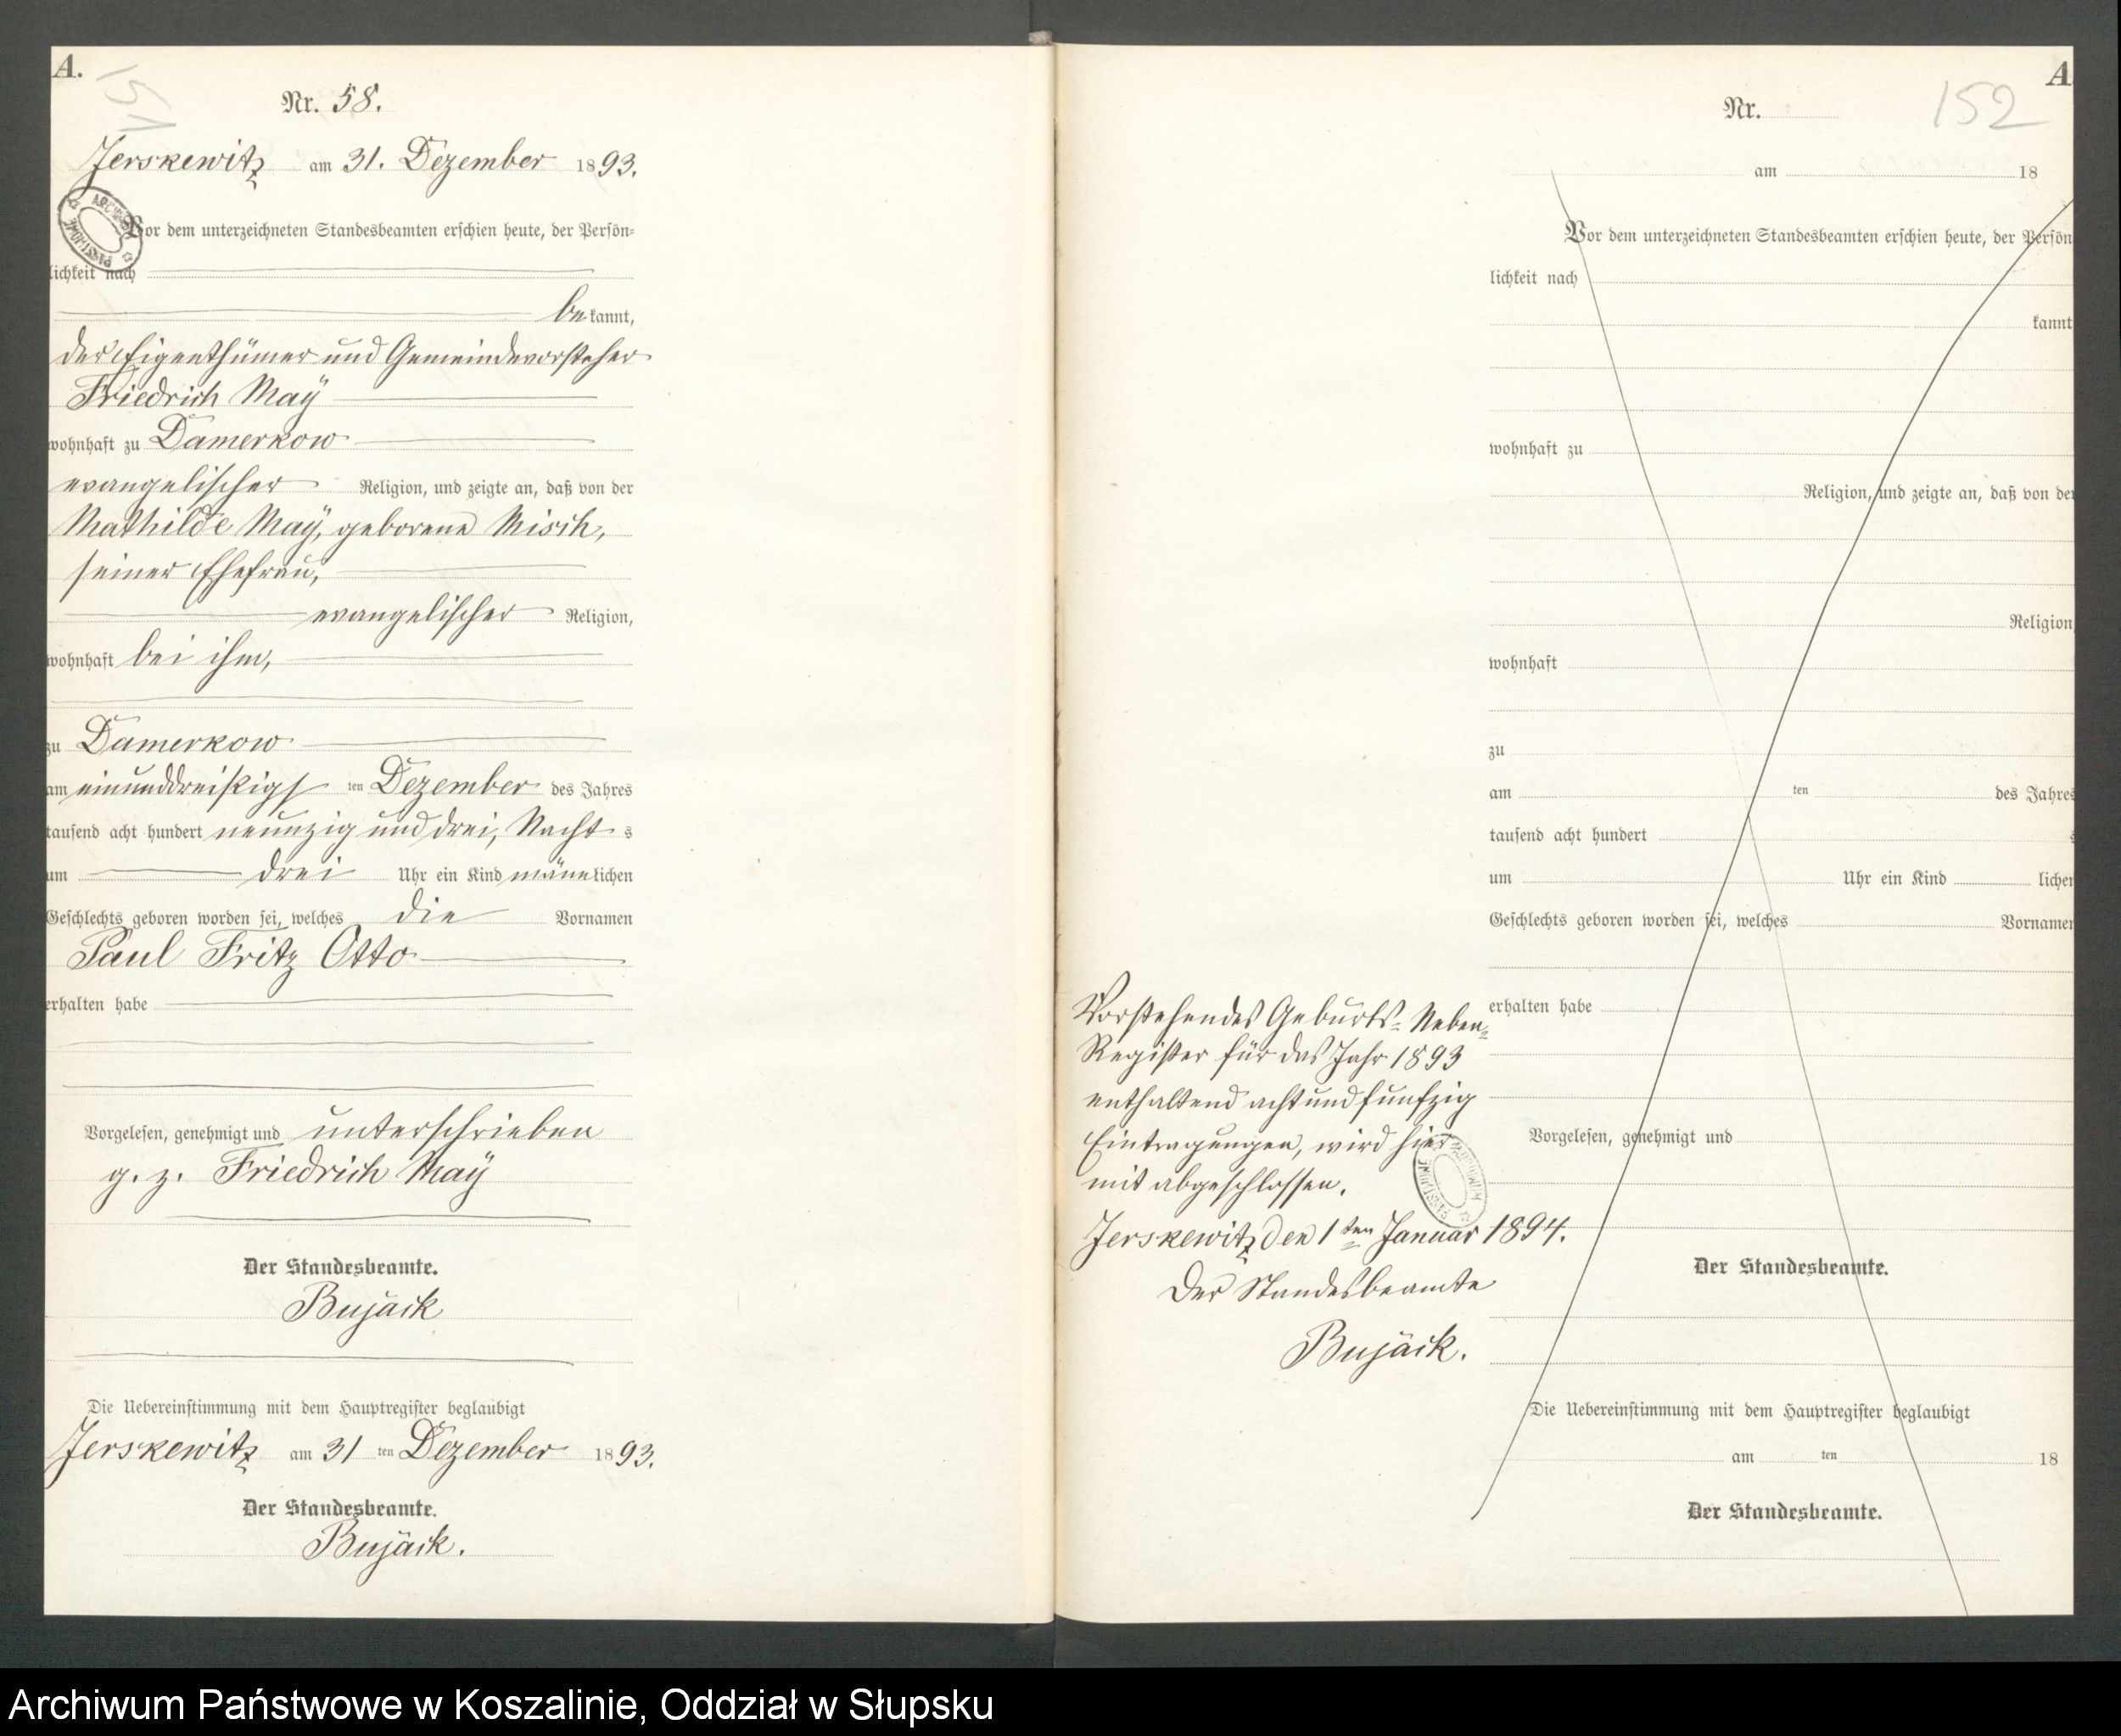 A.
151
Nr. 58.
Jerskewitz am 31. Dezember 1893.
Vor dem unterzeichneten Standesbeamten erschien heute, der Persön-
lichkeit nach
bekannt,
der Eigenthümer und Gemeindevorsteher
Friedrich Maÿ
wohnhaft zu Damerkow
evangelischer Religion, und zeigte an, daß von der
Mathilde Maÿ, geborene Misch,
seiner Ehefrau,
evangelischer Religion,
wohnhaft bei ihm,
zu Damerkow
am einunddreißigsten Dezember des Jahres
tausend acht hundert neunzig und drei, Nachts
um drei Uhr ein Kind männlichen
Geschlechts geboren worden sei, welches die Vornamen
Paul Fritz Otto
erhalten habe
Vorgelesen, genehmigt und unterschrieben
g. z. Friedrich Maÿ
Der Standesbeamte.
Bujack
Die Uebereinstimmung mit dem Hauptregister beglaubigt
Jerskewitz am 31 ten Dezember 1893.
Der Standesbeamte.
Bujack.
A
152
Nr.
am 18
Vor dem unterzeichneten Standesbeamten erschien heute, der Persön
lichkeit nach
kannt
wohnhaft zu
Religion, und zeigte an, daß von der
Religion
wohnhaft
zu
am ten des Jahres
tausend acht hundert
um Uhr ein Kind lichen
Geschlechts geboren worden sei, welches Vornamen
erhalten habe
Vorgelesen, genehmigt und
Der Standesbeamte.
Die Uebereinstimmung mit dem Hauptregister beglaubigt
am ten 18
Der Standesbeamte.
Vorstehendes Geburts-Neben-
Register für das Jahr 1893
enthaltend achtundfunfzig
Eintragungen, wird hier
mit abgeschlossen.
Jerskewitz den 1ten Januar 1894.
Der Standesbeamte
Bujack.
Archiwum Państwowe w Koszalinie, Oddział w Słupsku